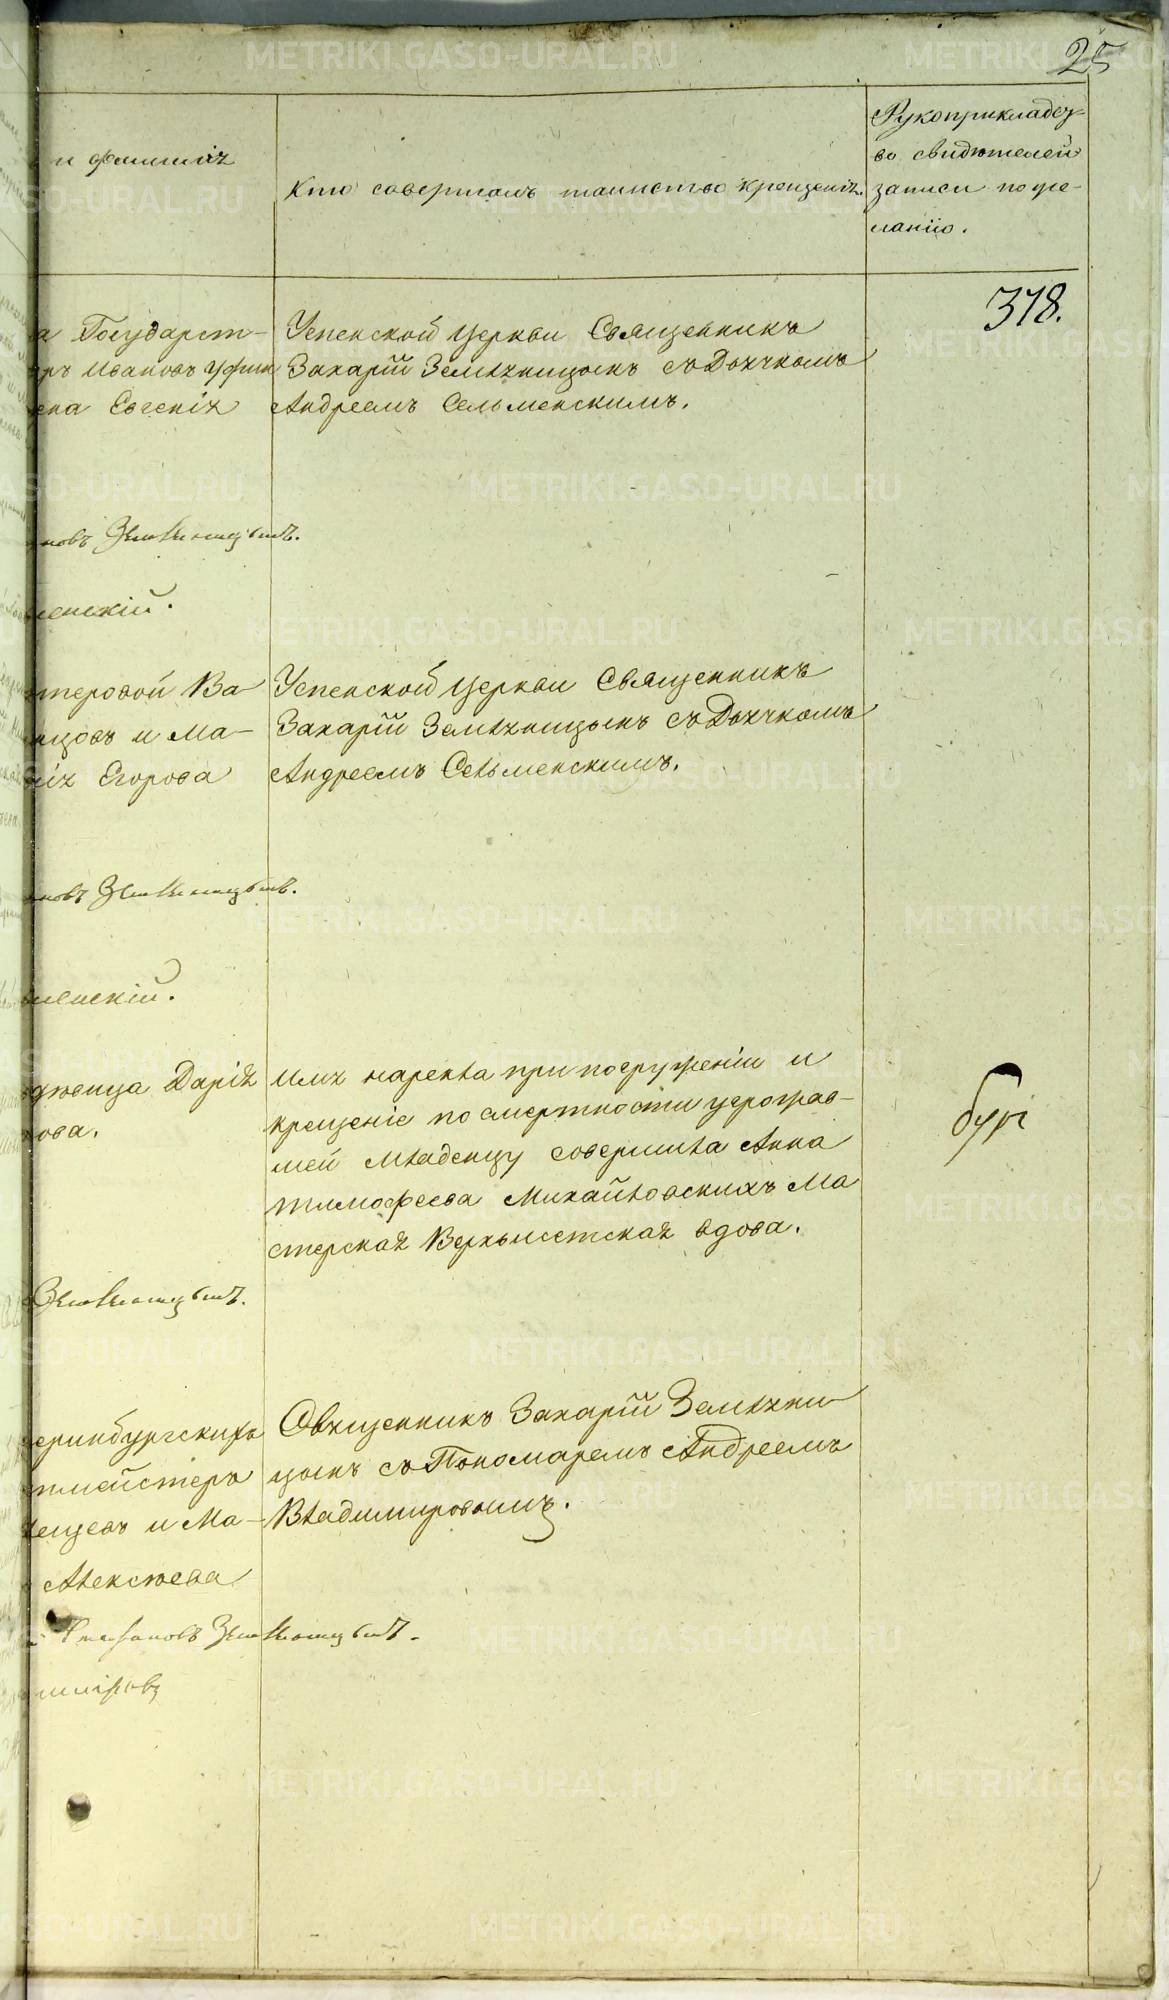 25
и фамилія
Кто совершалъ таинство крещенія.
Рукоприкладст-
во свидѣтелей
записи по же-
ланію.
378.
а Государст-
ръ Ивановъ Уфин
Евгенія
Успенской церкви Священникъ
Захарій Земляницынъ съ Дьячкомъ
Андреемъ Сельменскимъ.
новъ Земляницынъ.
менскій.
теровой Ва
нцовъ и Ма-
Егорова
Успенской церкви Священникъ
Захарій Земляницынъ съ Дьячкомъ
Андреемъ Сельменскимъ.
новъ Земляницынъ.
менскій.
дѣвица Дарія
ова.
Имя наречла при погруженіи и
крещеніе по смертности угрожав-
шей младенцу совершила Анна
Тимофеева Михайловскихъ Ма
стерская Верхъисетская вдова.
Земляницынъ.
еринбургскихъ
тмейстеръ
и Ма-
Алексѣева
Священникъ Захарій Земляни
цынъ съ Пономаремъ Андреемъ
Владимировымъ.
Стефановъ Земляницынъ.
миіровъ
METRIKI.GASO-URAL.RU